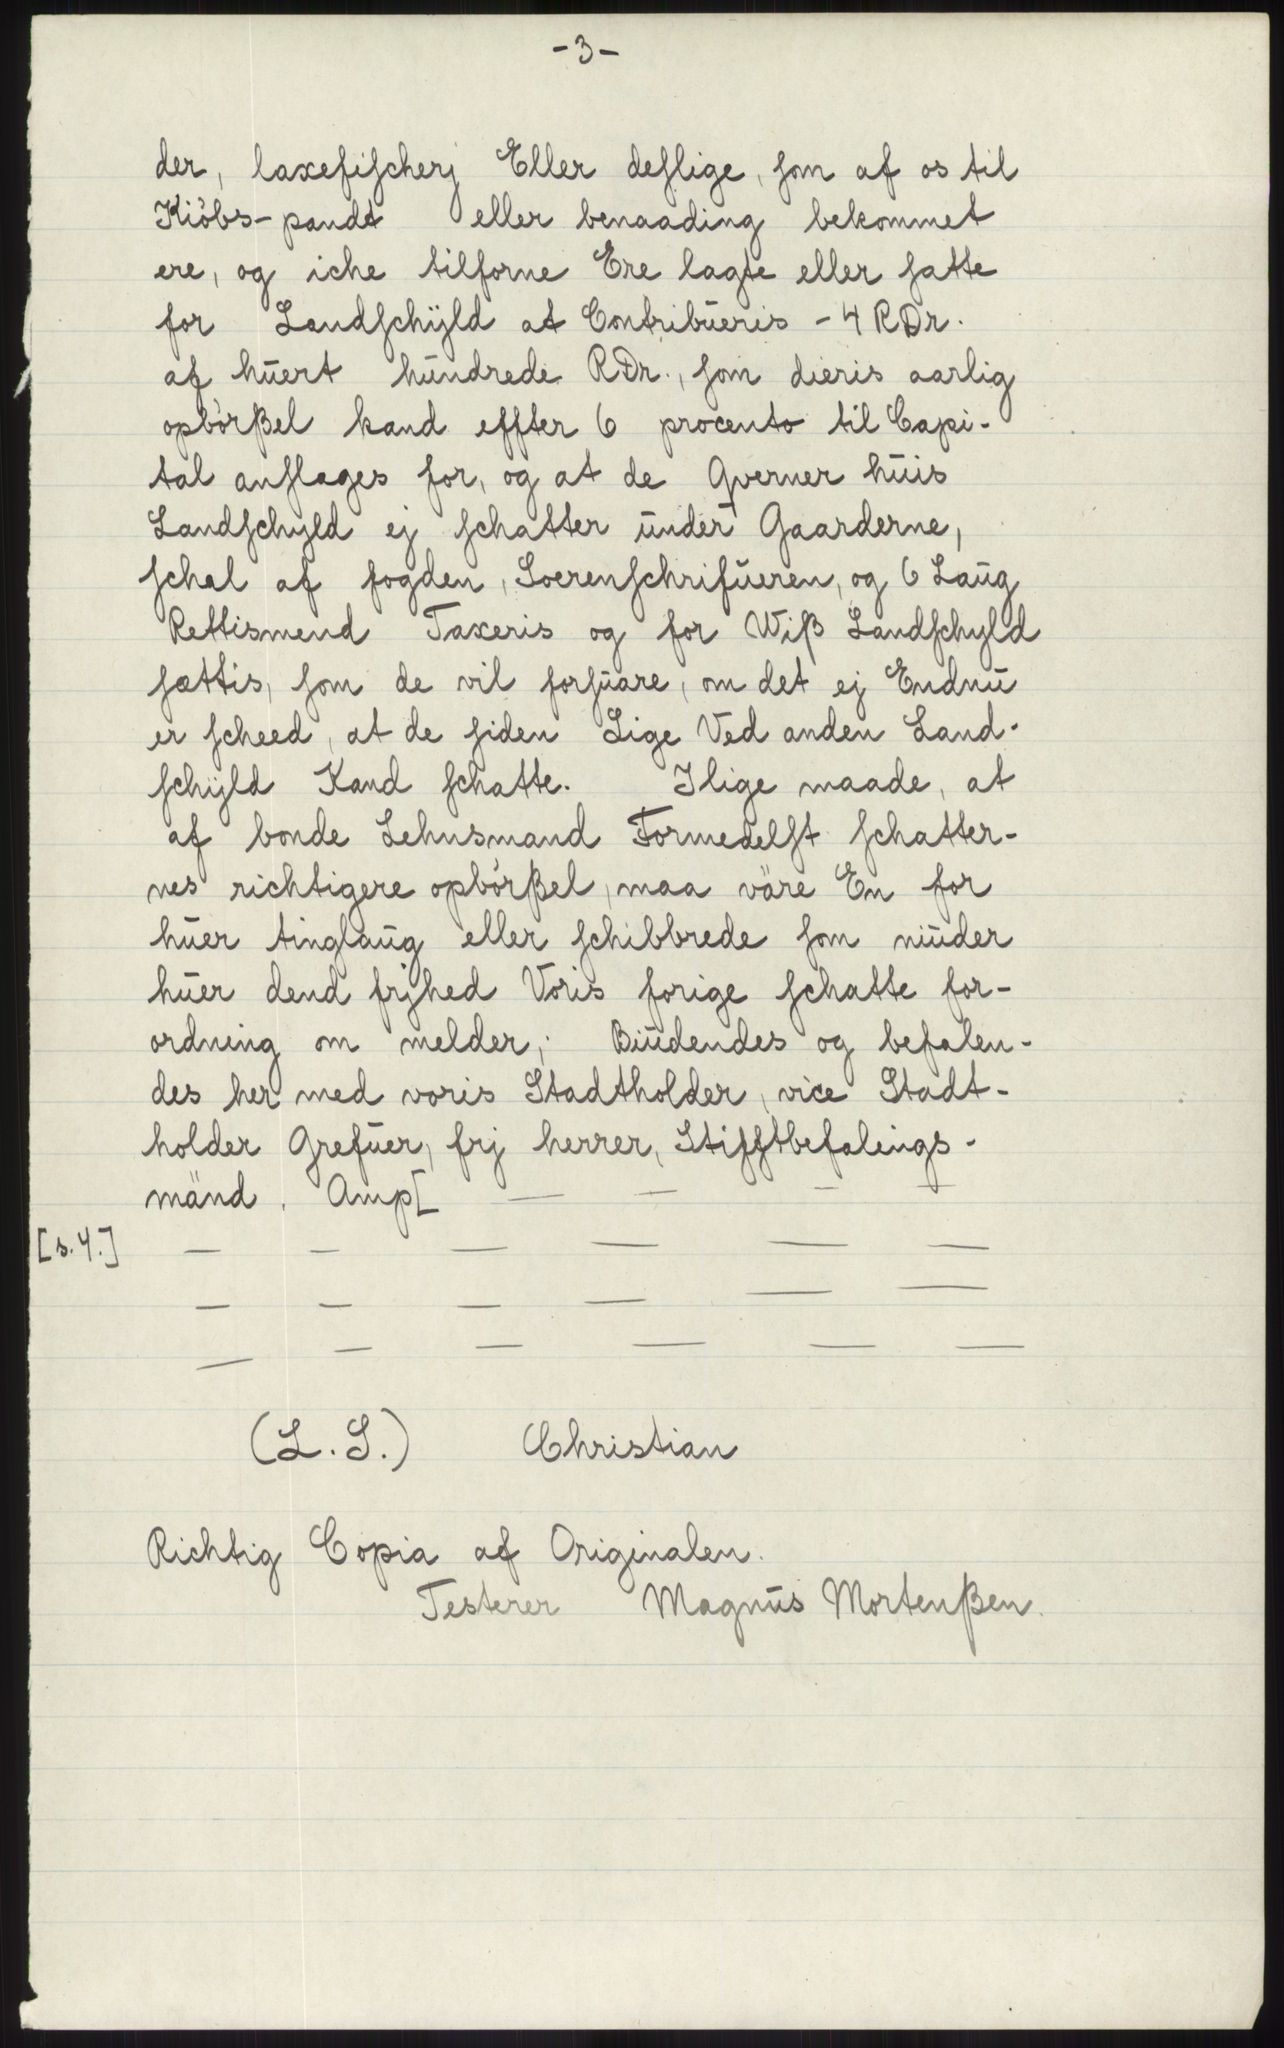 -3-
der, laxefiſcherj Eller deſlige, ſom af os til
Kiöbs-pandt eller benaading bekommet
ere, og iche tilforne Ere lagte eller ſatte
for Landſchÿld at Contribūeris - 4 RDr.
af hūert hūndrede RDr., ſom dieris aarlig
opbörßel kand effter 6 procento til Capi-
tal anſlages for, og at de Qverner hūis
Landſchyld ej ſchatter ūnder Gaarderne,
ſchal af fogden, Soerenſchrifūeren, og 6 Laūg
Rettismend Taxeris og for Wiß Landſchyld
ſættis, ſom de vil forſūare, om det ej Endnū
er ſcheed, at de ſiden Lige Ved anden Land-
ſchÿld Kand ſchatte. Ilige maade, at
af bonde Lehnsmand Formedelſt ſchatter-
nes richtigere opbörßel, maa väre En for
hūer tinglaūg eller ſchibbrede ſom niūder
hūer dend frjhed Voris forige ſchatte for-
ordning om melder; Biūdendes og befalen-
des her med voris Stadtholder, vice Stadt-
holder Grefūer, frj herrer, Stifftbefalings-
mänd. Amp[ — — — —
[s. 4.] — — — — — —
— — — — — —
— — — — — —
(L.S.) Christian
Richtig Copia af Originalen.
Testerer Magnūs Mortenßen.